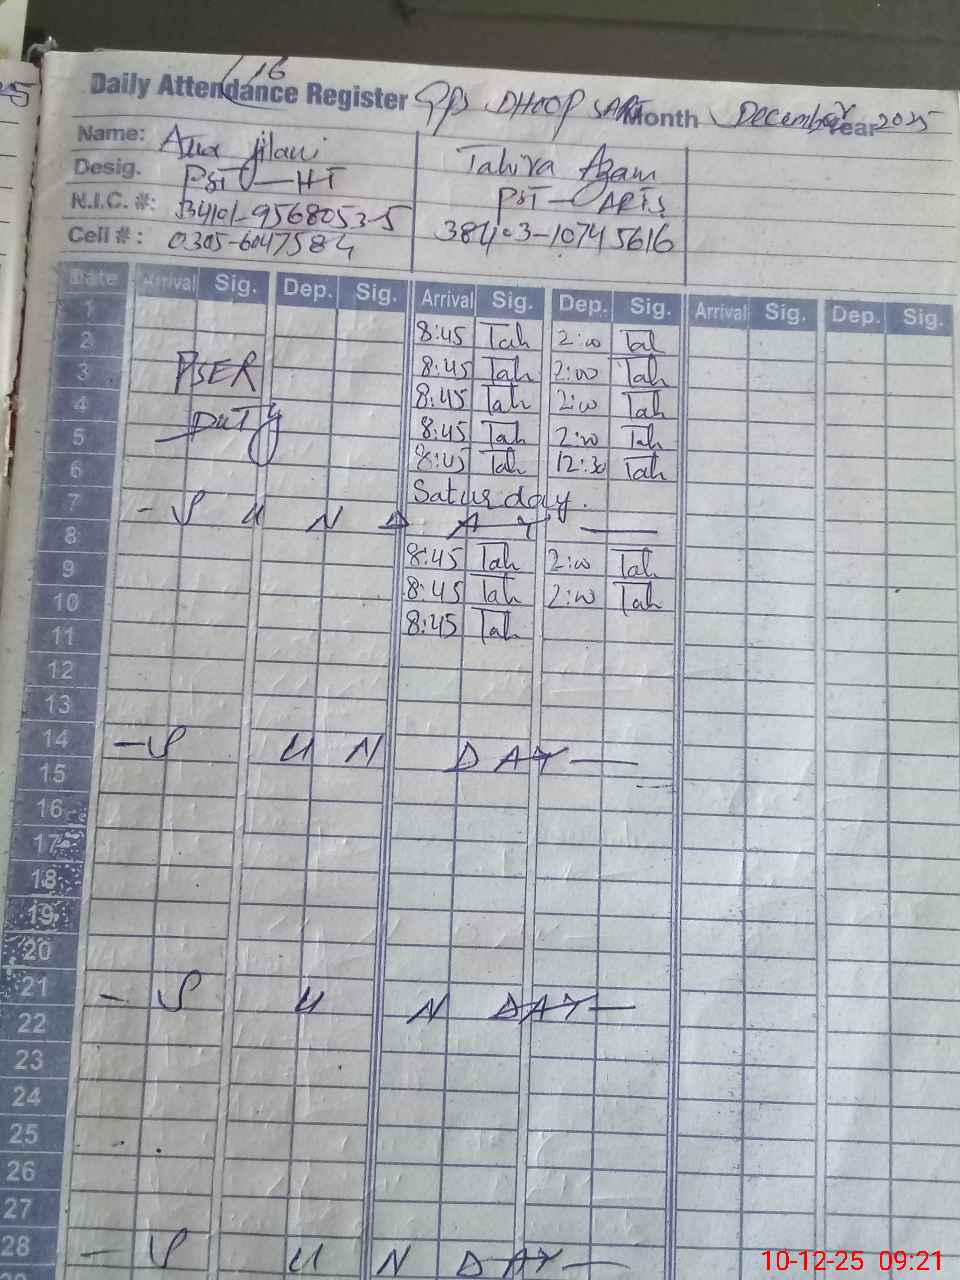 25
16
Daily Attendance Register GPS DHOOP SARI Month December Year 2025
Name: jilani Tahira Azam
Desig. PST — HT PST — ARTS
N.I.C. #: 34101-9568053-5 38403-10745616
Cell #: 0305-6047584
Date Arrival Sig. Dep. Sig. Arrival Sig. Dep. Sig. Arrival Sig. Dep. Sig.
1 8:45 Tah 2:00 Tah
2 8:45 Tah 2:00 Tah
3 PSER 8:45 Tah 2:00 Tah
4 DUTY 8:45 Tah 2:00 Tah
5 8:45 Tah 12:30 Tah
6 Saturday.
7 - S U N D A Y —
8 8:45 Tah 2:00 Tah
9 8:45 Tah 2:00 Tah
10 8:45 Tah
11
12
13
14 - S U N D A Y —
15
16
17
18
19
20
21 - S U N D A Y —
22
23
24
25
26
27
28 - S U N D A Y —
10-12-25 09:21